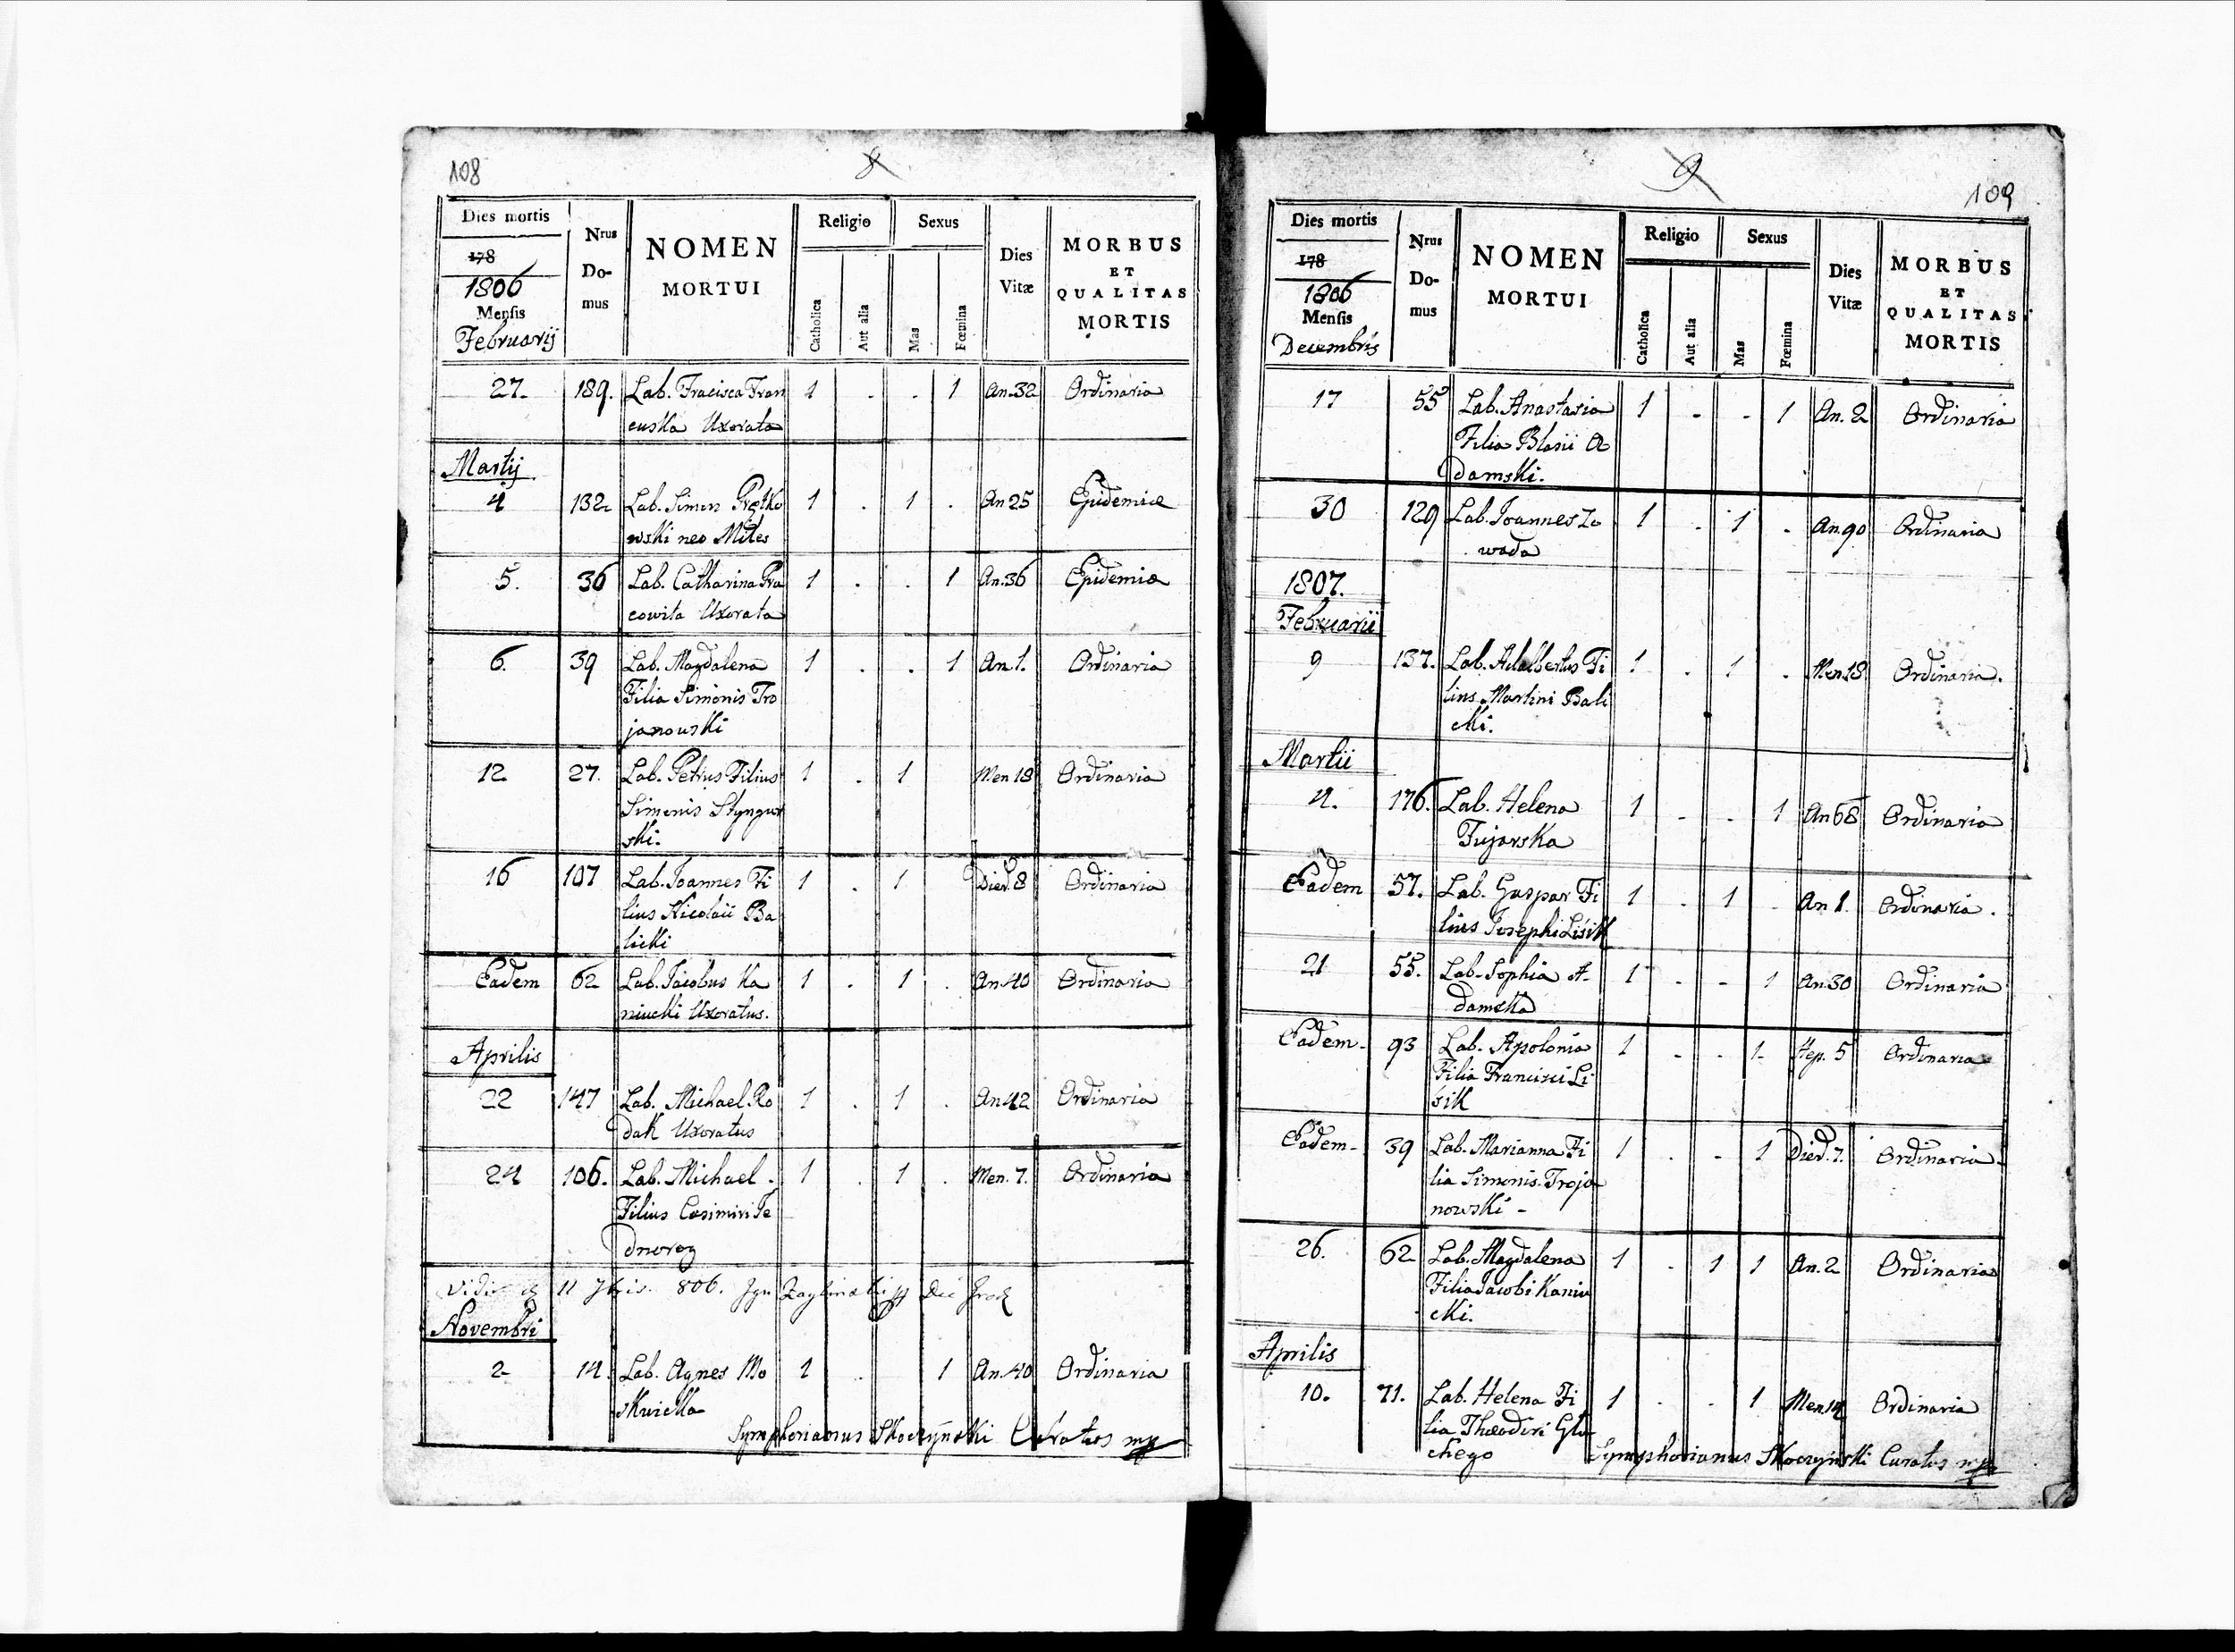 108
8
Dies mortis
178
1806
Mensis
Februarij
Nrus
Do-
mus
NOMEN
MORTUI
Religio
Catholica
Aut alia
Sexus
Mas
Fœmina
Dies
Vitæ
MORBUS
ET
QUALITAS
MORTIS
27. 189. Lab. Fracisca Fran 1 . . 1 An.32 Ordinaria
cuska Uxorata
Martij
4 132 Lab. Simon Prętko 1 . 1 . An 25 Epidemia
wski neo Miles
5. 36 Lab. Catharina Pra 1 . . 1 An.36 Epidemia
cowita Uxorata
6. 39 Lab. Magdalena 1 . . 1 An 1. Ordinaria
Filia Simonis Tro
janowski
12 27. Lab. Petrus Filius 1 . 1 Men 18 Ordinaria
Simonis
ski.
16 107 Lab. Joannes Fi 1 . 1 Dier. 8 Ordinaria
lius Nicolaii Ba
licki
Eadem 62 Lab. Jacobus Ka 1 . 1 . An.40 Ordinaria
niucki Uxoratus.
Aprilis
22 147 Lab. Michael Ro 1 . 1 . An 42 Ordinaria
dak Uxoratus
24 106. Lab. Michael 1 . 1 . Men. 7. Ordinaria
Filius Casimiri Je
dnorog
Vidi 11 806.
Novembri
2 14. Lab. Agnes Mo 1 . 1 An.40 Ordinaria
skwicka
Symphorianus Skoczynski Curatus mp
9
109
Dies mortis
178
1806
Mensis
Decembris
Nrus
Do-
mus
NOMEN
MORTUI
Religio
Catholica
Aut alia
Sexus
Mas
Fœmina
Dies
Vitæ
MORBUS
ET
QUALITAS
MORTIS
17 55 Lab. Anastasia 1 - - 1 An. 2 Ordinaria
Filia Blasii A
damski.
30 129 Lab. Joannes Za 1 . 1 . An.90 Ordinaria
wada
1807.
Februarii
9 137. Lab. Adalbertus Fi 1 . 1 . Men.18 Ordinaria.
lius Martini Bali
cki.
Martii
4. 176. Lab. Helena 1 - - 1 An 68 Ordinaria
Fujarska
Eadem 57. Lab. Gaspar Fi 1 . 1 . An 1. Ordinaria.
lius Josephi Lisik
21 55. Lab. Sophia A- 1 - - 1 An.30 Ordinaria
damska
Eadem- 93 Lab. Apolonia 1 - - 1- Hep. 5 Ordinaria
Filia Francisci Li
sik
Eadem- 39 Lab. Marianna Fi 1 . - 1 Dier. 7. Ordinaria
lia Simonis Troja
nowski -
26. 62 Lab. Magdalena 1 . 1 1 An. 2 Ordinaria
Filia Jacobi Kaniu
cki.
Aprilis
10. 71. Lab. Helena Fi 1 . . 1 Men.14 Ordinaria
lia Theodori Glu
chego
Symphorianus Skoczynski Curatus mp